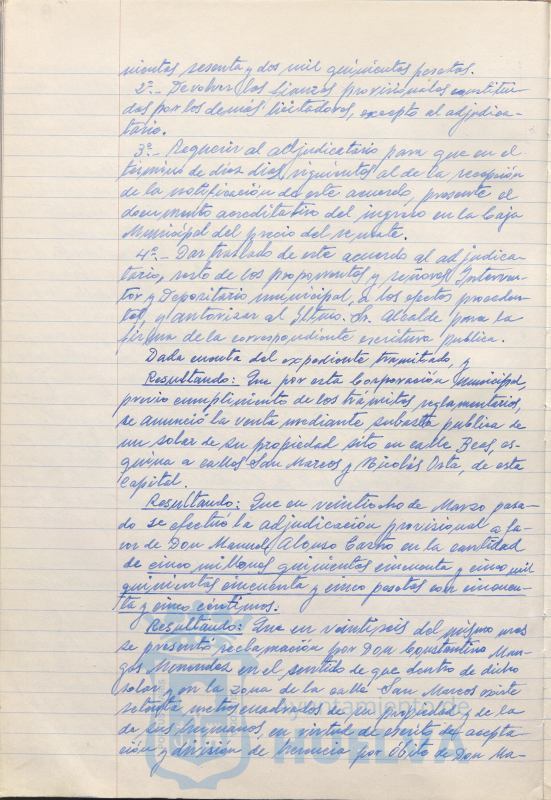 nientas sesenta y dos mil quinientas pesetas.
2º.- Devolver las fianzas provisionales constitui-
das por los demás licitadores, excepto al adjudica-
tario.
3º.- Requerir al adjudicatario para que en el
término de diez días siguientes al de la recepción
de la notificación de este acuerdo, presente el
documento acreditativo del ingreso en la Caja
Municipal del precio del remate.
4º.- Dar traslado de este acuerdo al adjudica-
tario, resto de los proponentes y señores Interven-
tor y Depositario municipal, a los efectos proceden-
tes, y autorizar al Iltmo. Sr. Alcalde para la
firma de la correspondiente escritura pública.
Dada cuenta del expediente tramitado, y
Resultando: Que por esta Corporación Municipal,
previo cumplimiento de los trámites reglamentarios,
se anunció la venta mediante subasta pública de
un solar de su propiedad sito en calle Beas, es-
quina a calles San Marcos y Nicolás Orta, de esta
Capital.
Resultando: Que en veintiocho de Marzo pasa-
do se efectuó la adjudicación provisional a fa-
vor de Don Manuel Alonso en la cantidad
de cinco millones quinientas cincuenta y cinco mil
quinientas cincuenta y cinco pesetas con cincuen-
ta y cinco céntimos.
Resultando: Que en veintiseis del mismo mes
se presentó reclamación por Don Constantino Mon-
gas Menendez en el sentido de que dentro de dicho
solar y en la zona de la calle San Marcos existe
setenta metros cuadrados de su propiedad y de la
de sus hermanos, en virtud de escrito de acepta-
ción y división de herencia por óbito de Don Ma-
Ayuntamiento de
HUELVA